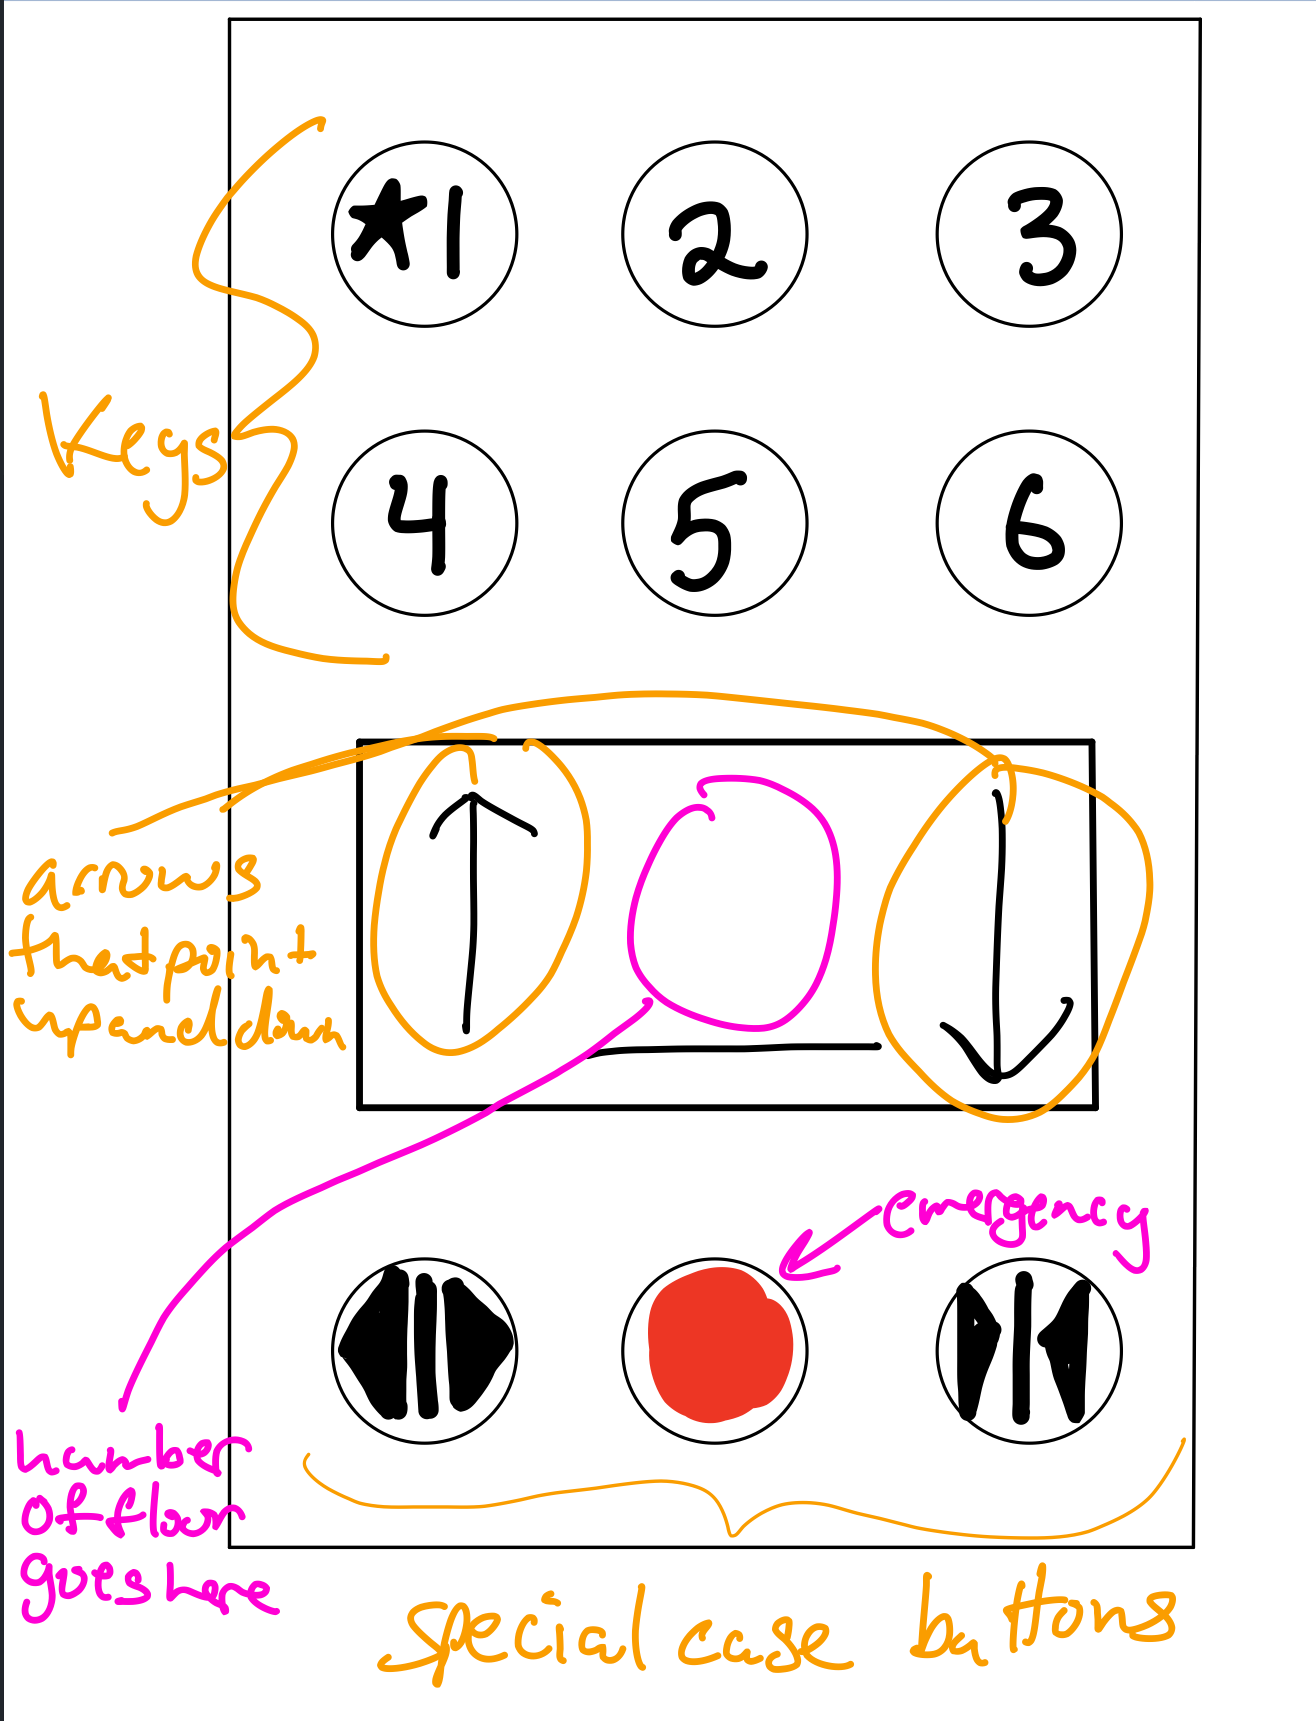 ★1 2 3
Keys
4 5 6
arrows
that point
up and down
emergency
number
of floor
goes here
special case buttons